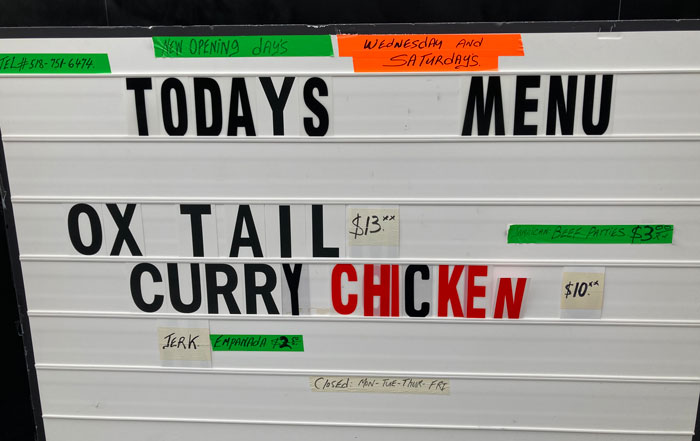 NEW OPENING days
WEDNESDAY AND
SATURDAYS.
TEL# 518-751-6474
TODAYS MENU
OX TAIL $13.xx
BEEF PATTIES $3.00
CURRY CHICKEN $10.xx
JERK EMPANADA $2
Closed: MON-TUE-THUR-FRI